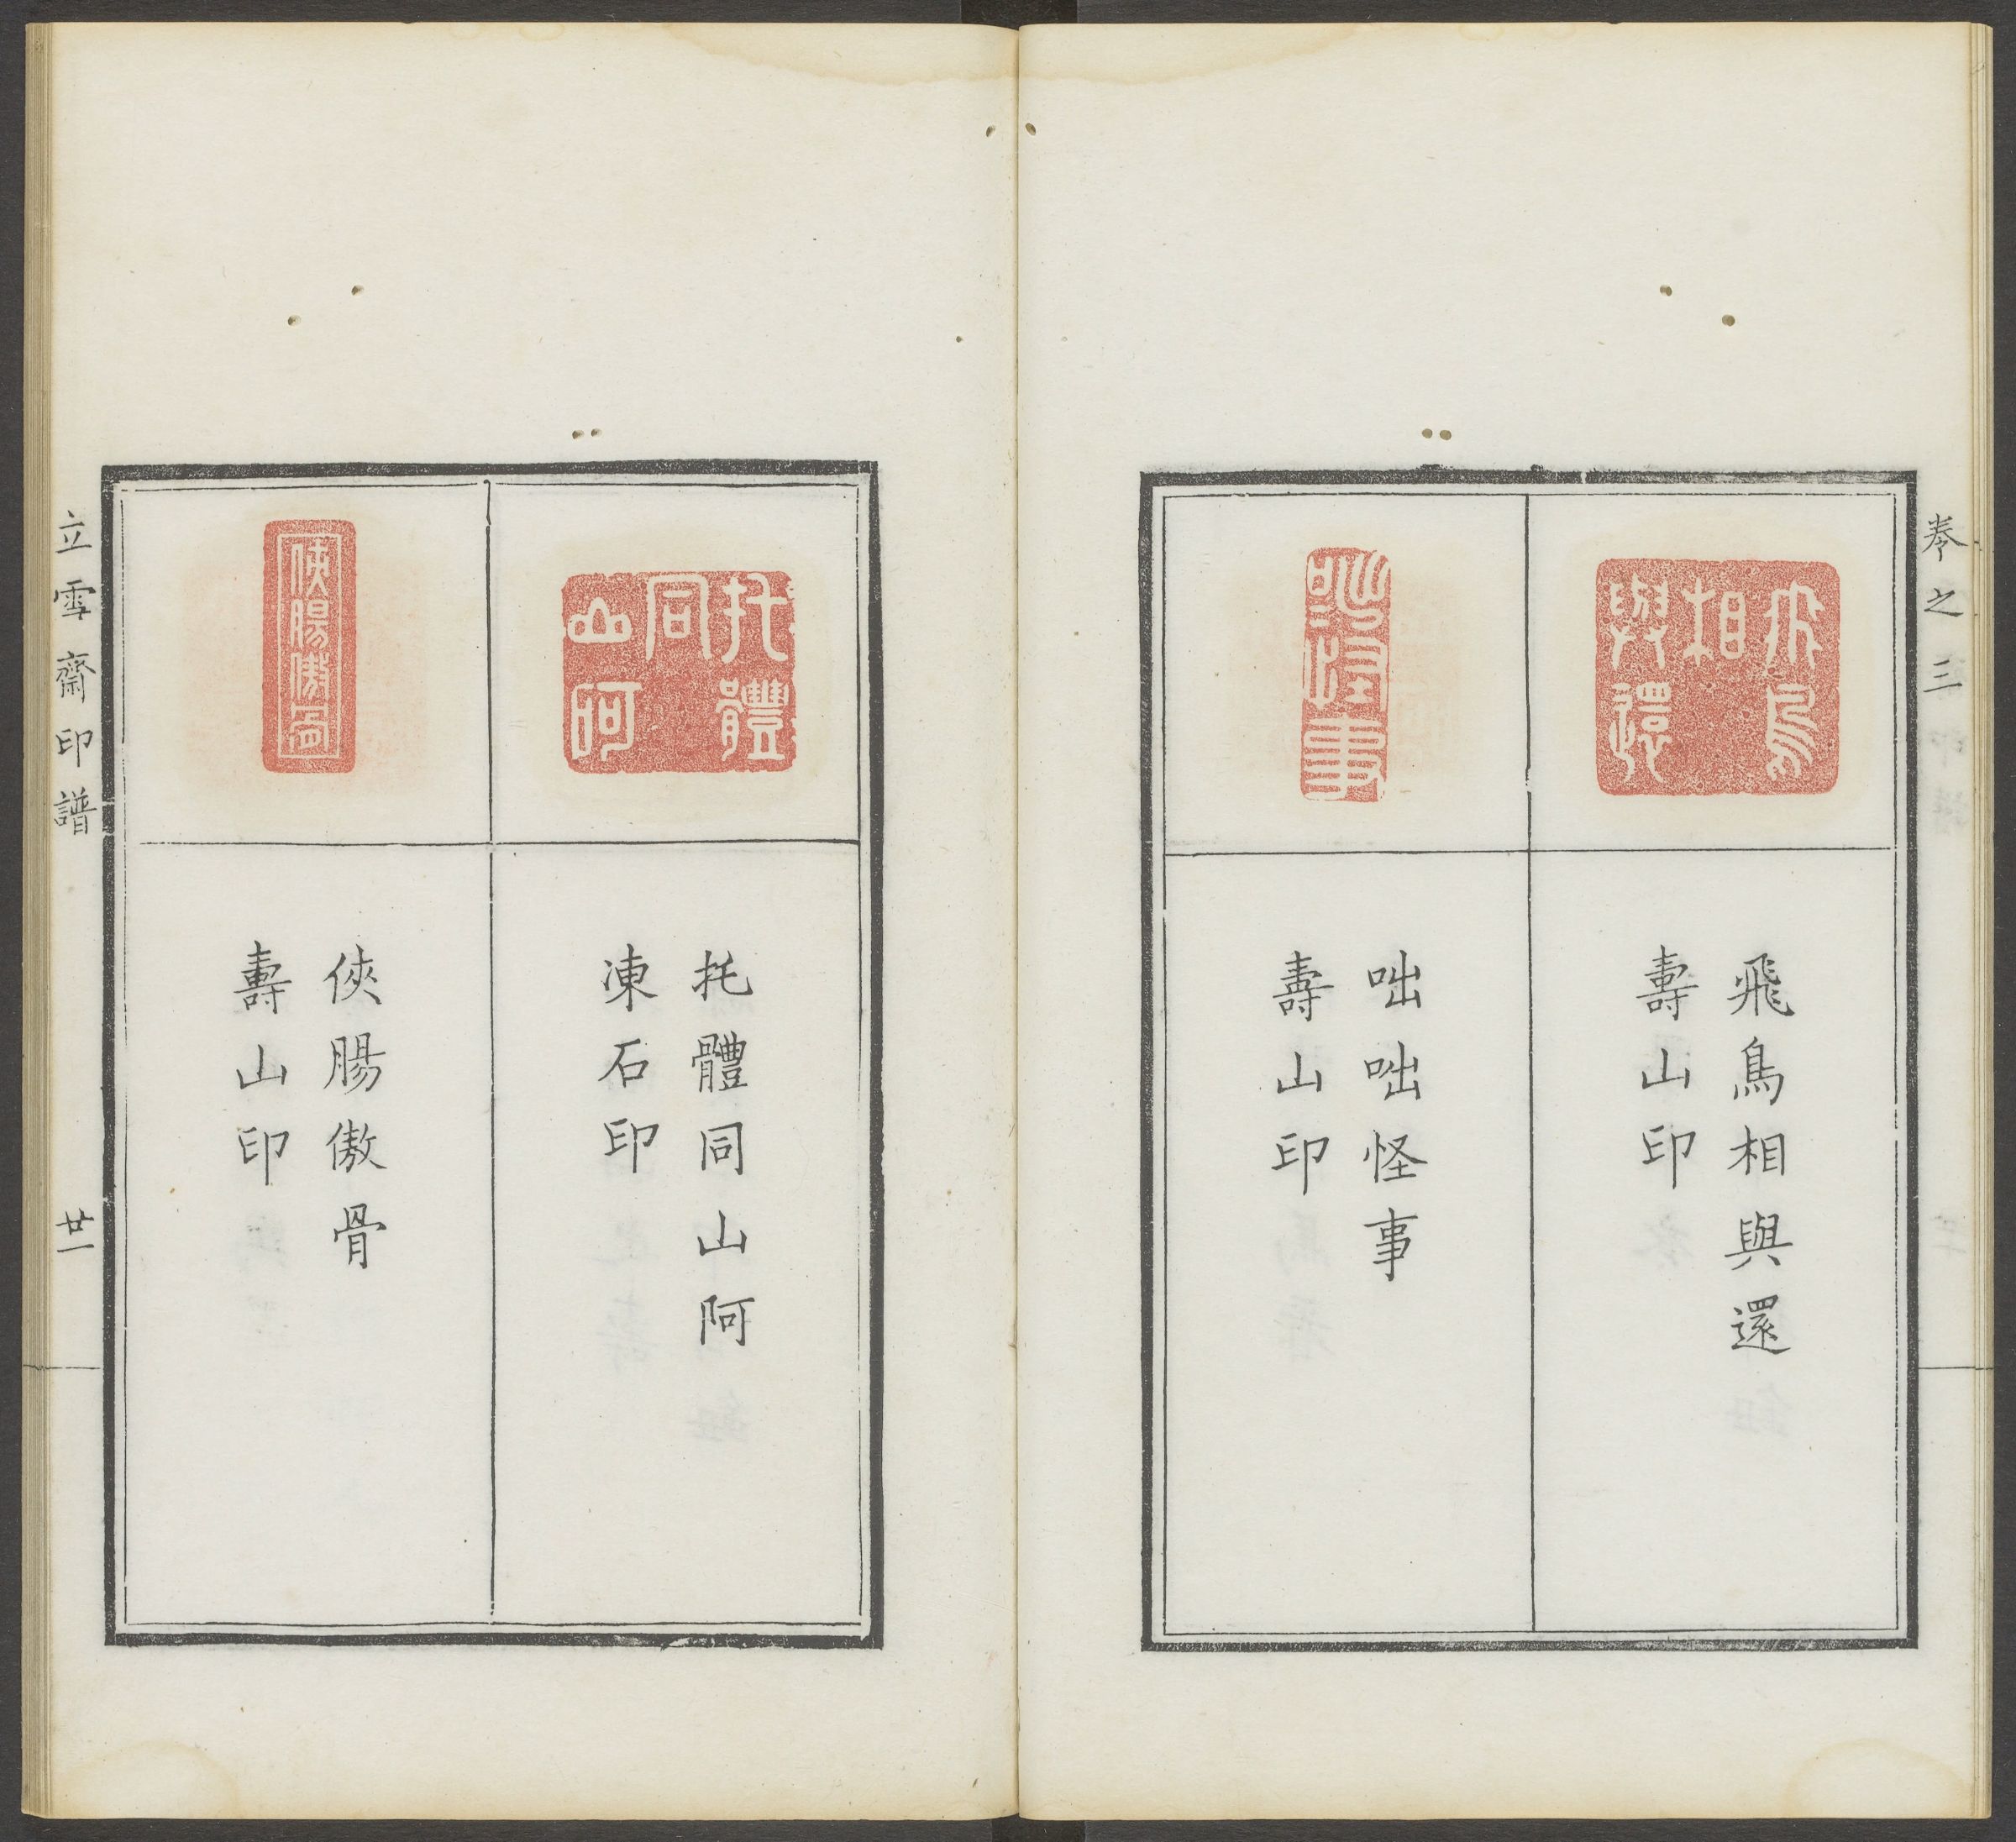 卷之三
飛鳥相與還
飛鳥相與還
壽山印
咄咄怪事
咄咄怪事
壽山印
托體同山阿
托體同山阿
凍石印
俠腸傲骨
俠腸傲骨
壽山印
立雪齋印譜
廿一